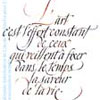 L'art
c'est l'effort constant
de ceux
qui veillent à fixer
dans le temps
la saveur
de la vie